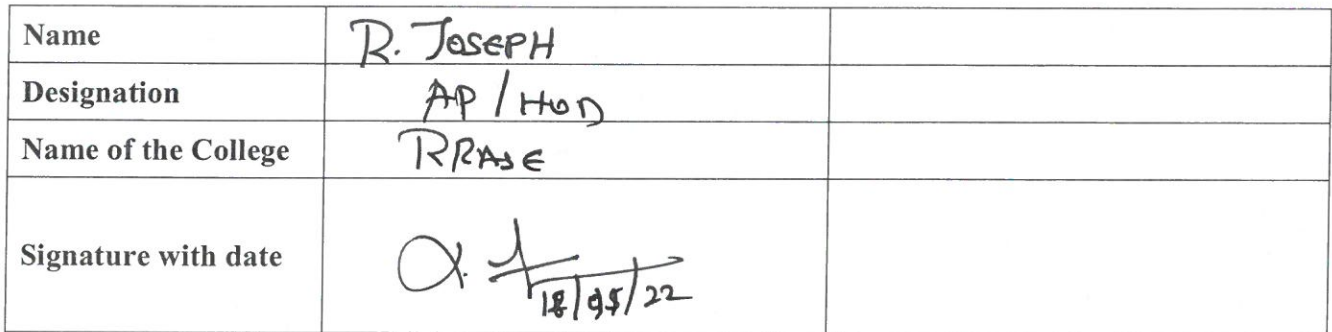 Name R. JOSEPH
Designation AP / HOD
Name of the College RRASE
Signature with date 18/05/22